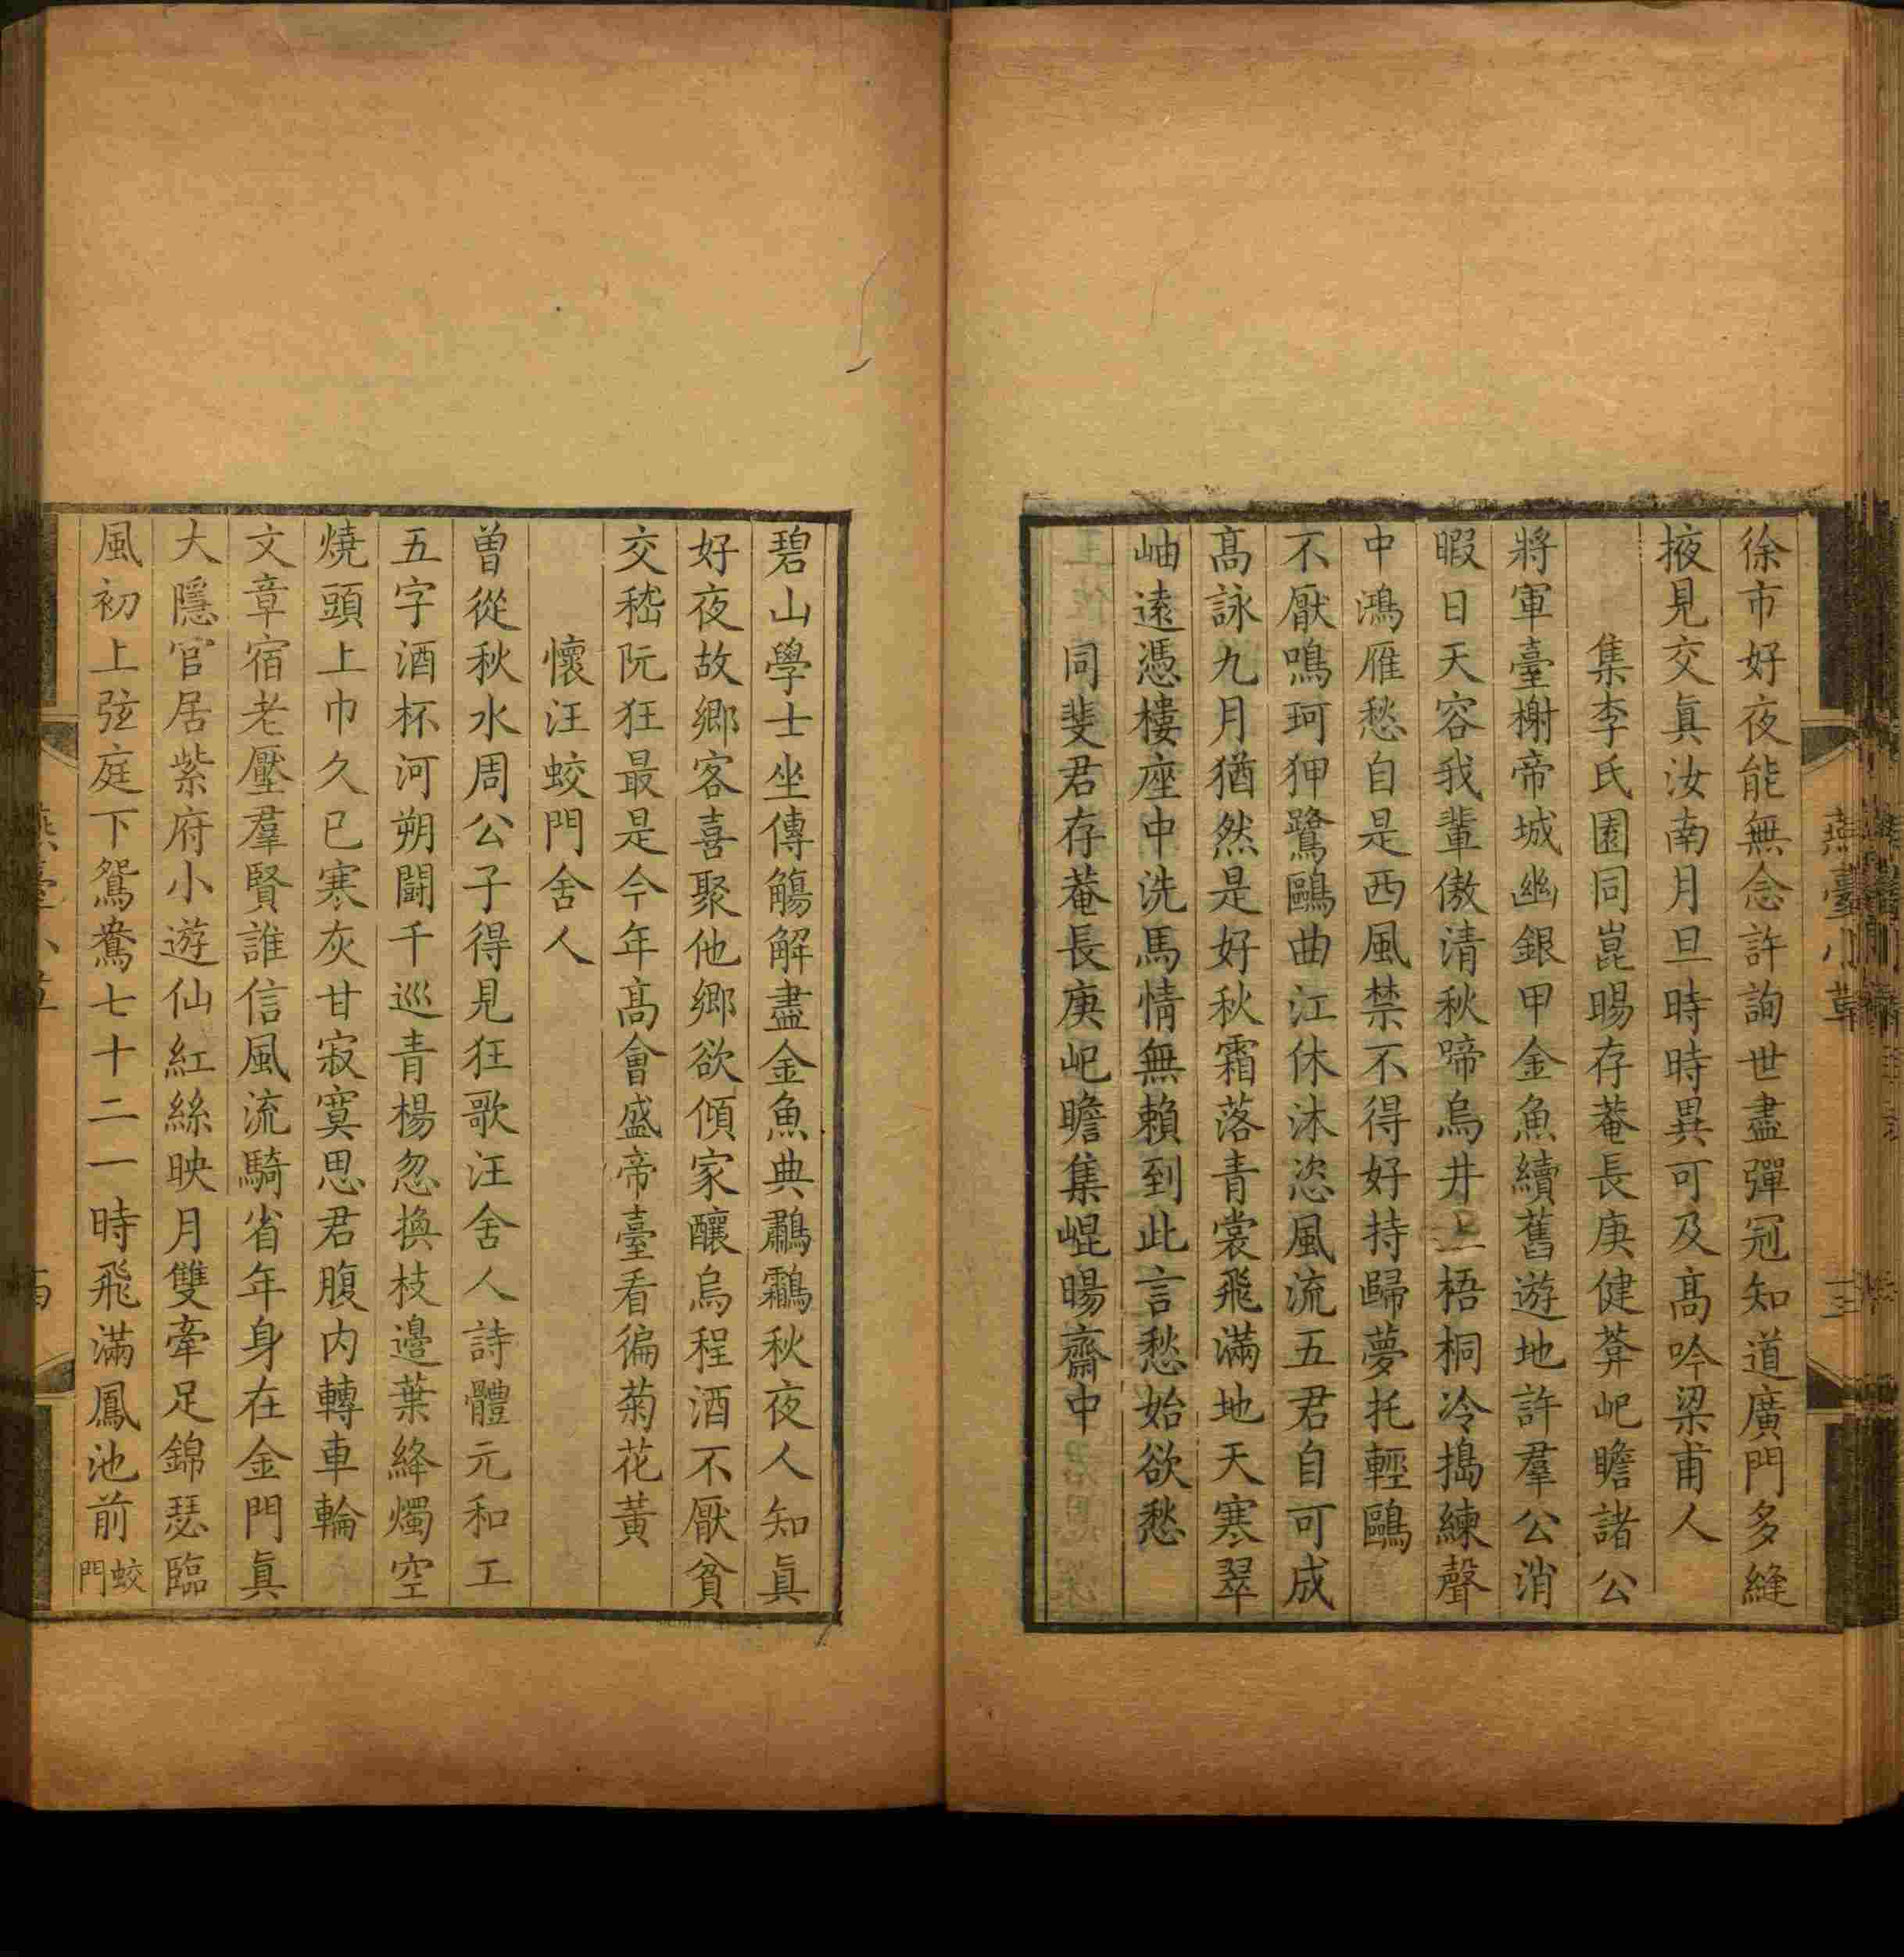 徐市好夜能無念許詢世盡彈冠知道廣門多縫
掖見交眞汝南月旦時時異可及高吟梁甫人
集李氏園同崑暘存菴長庚健莾屺瞻諸公
將軍臺榭帝城幽銀甲金魚續舊遊地許羣公消
暇日天容我輩傲清秋啼烏井上梧桐冷搗練聲
中鴻雁愁自是西風禁不得好持歸夢托輕鷗
不厭鳴珂狎鷺鷗曲江休沐恣風流五君自可成
高詠九月猶然是好秋霜落青裳飛滿地天寒翠
岫遠憑樓座中洗馬情無賴到此言愁始欲愁
同斐君存菴長庚屺瞻集崐暘齋中
燕臺小草
十三
碧山學士坐傳觴解盡金魚典鸘鷞秋夜人知眞
好夜故鄉客喜聚他鄉欲傾家釀烏程酒不厭貧
交嵇阮狂最是今年高會盛帝臺看徧菊花黃
懷汪蛟門舍人
曾從秋水周公子得見狂歌汪舍人詩體元和工
五字酒杯河朔鬪千巡青楊忽換枝邊葉絳燭空
燒頭上巾久已寒灰甘寂寞思君腹内轉車輪
文章宿老壓羣賢誰信風流騎省年身在金門眞
大隱官居紫府小遊仙紅絲映月雙牽足錦瑟臨
風初上弦庭下鴛鴦七十二一時飛滿鳳池前蛟門